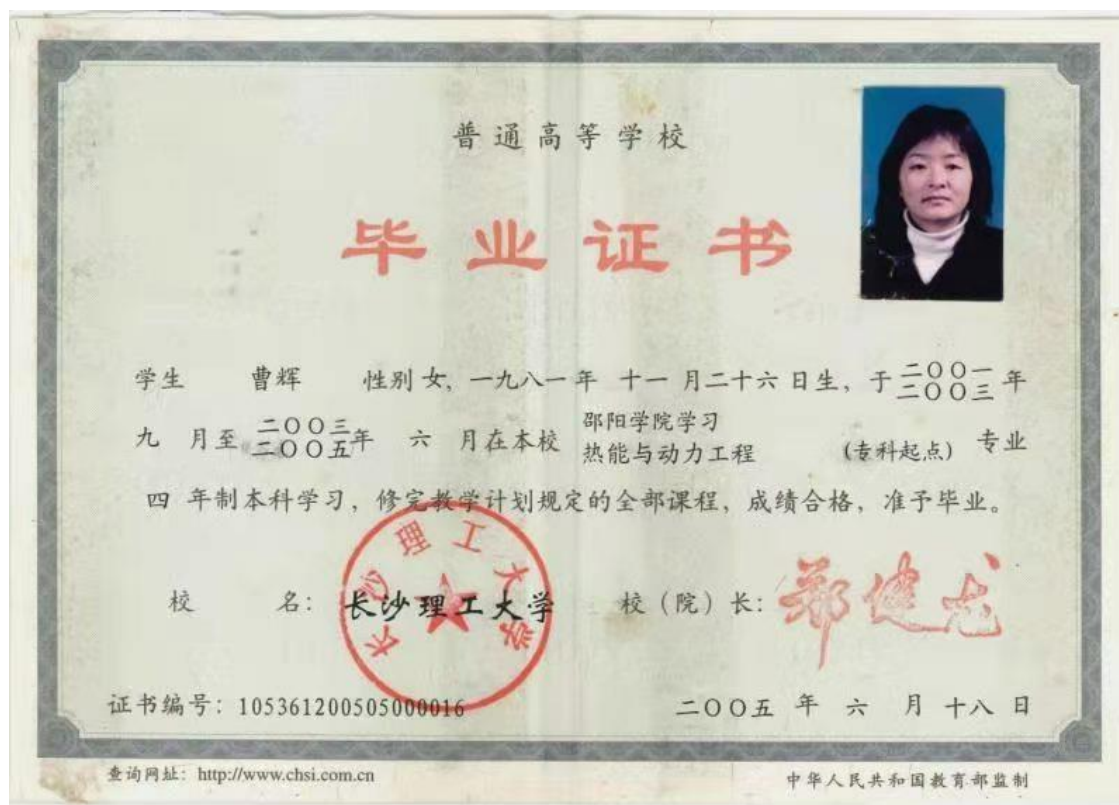 普通高等学校
毕业证书
学生 曹辉 性别 女, 一九八一年 十一 月二十六 日生, 于 二〇〇一 年
二〇〇三
九 月至 二〇〇三 年 六 月在本校 邵阳学院学习 专业
二〇〇五 热能与动力工程 (专科起点)
四 年制本科学习, 修完教学计划规定的全部课程, 成绩合格, 准予毕业。
长沙理工大学
校 名: 长沙理工大学 校(院)长: 郑健龙
证书编号: 105361200505000016 二〇〇五 年 六 月 十八 日
查询网址: http://www.chsi.com.cn 中华人民共和国教育部监制